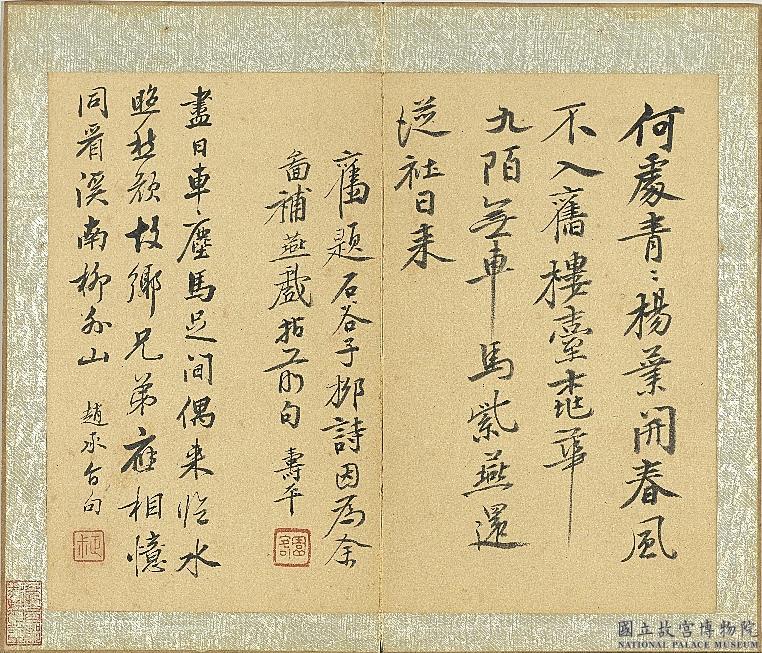 何處青〻楊葉開春風
不入舊樓臺桃華
九陌無車馬紫燕還
從社日来
舊題石谷子柳詩因為余
畣補燕戲拈前句 壽平
盡日車塵馬足间偶来临水
照愁顏故鄉兄弟应相憶
同看溪南柳外山 趙承旨句
國立故宮博物院
NATIONAL PALACE MUSEUM